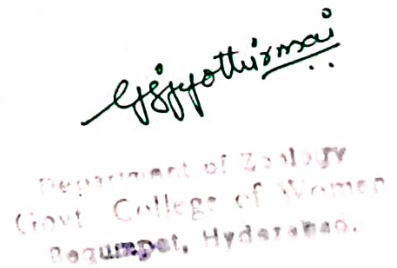 G Jyothirmai
Department of Zoology
Govt. College of Women
Begumpet, Hyderabad.